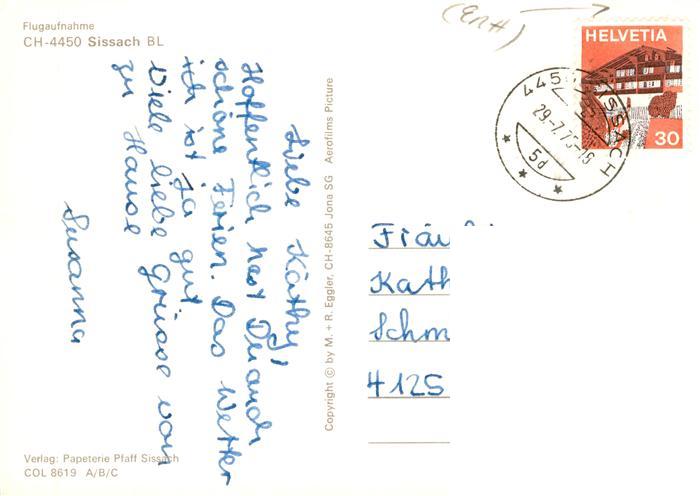 Flugaufnahme
CH-4450 Sissach BL
Liebe Käthy,
Hoffentlich hast Du auch
schöne Ferien. Das Wetter
ich ist ja gut
Viele liebe grüsse von
zu Hause
Susanna
Verlag: Papeterie Pfaff Sissach
COL 8619 A/B/C
Copyright © by M. + R. Eggler, CH-8645 Jona SG Aerofilms Picture
HELVETIA
30
4450 SISSACH
29.-7.7
5d
Fräu
Kath
Schm
4125